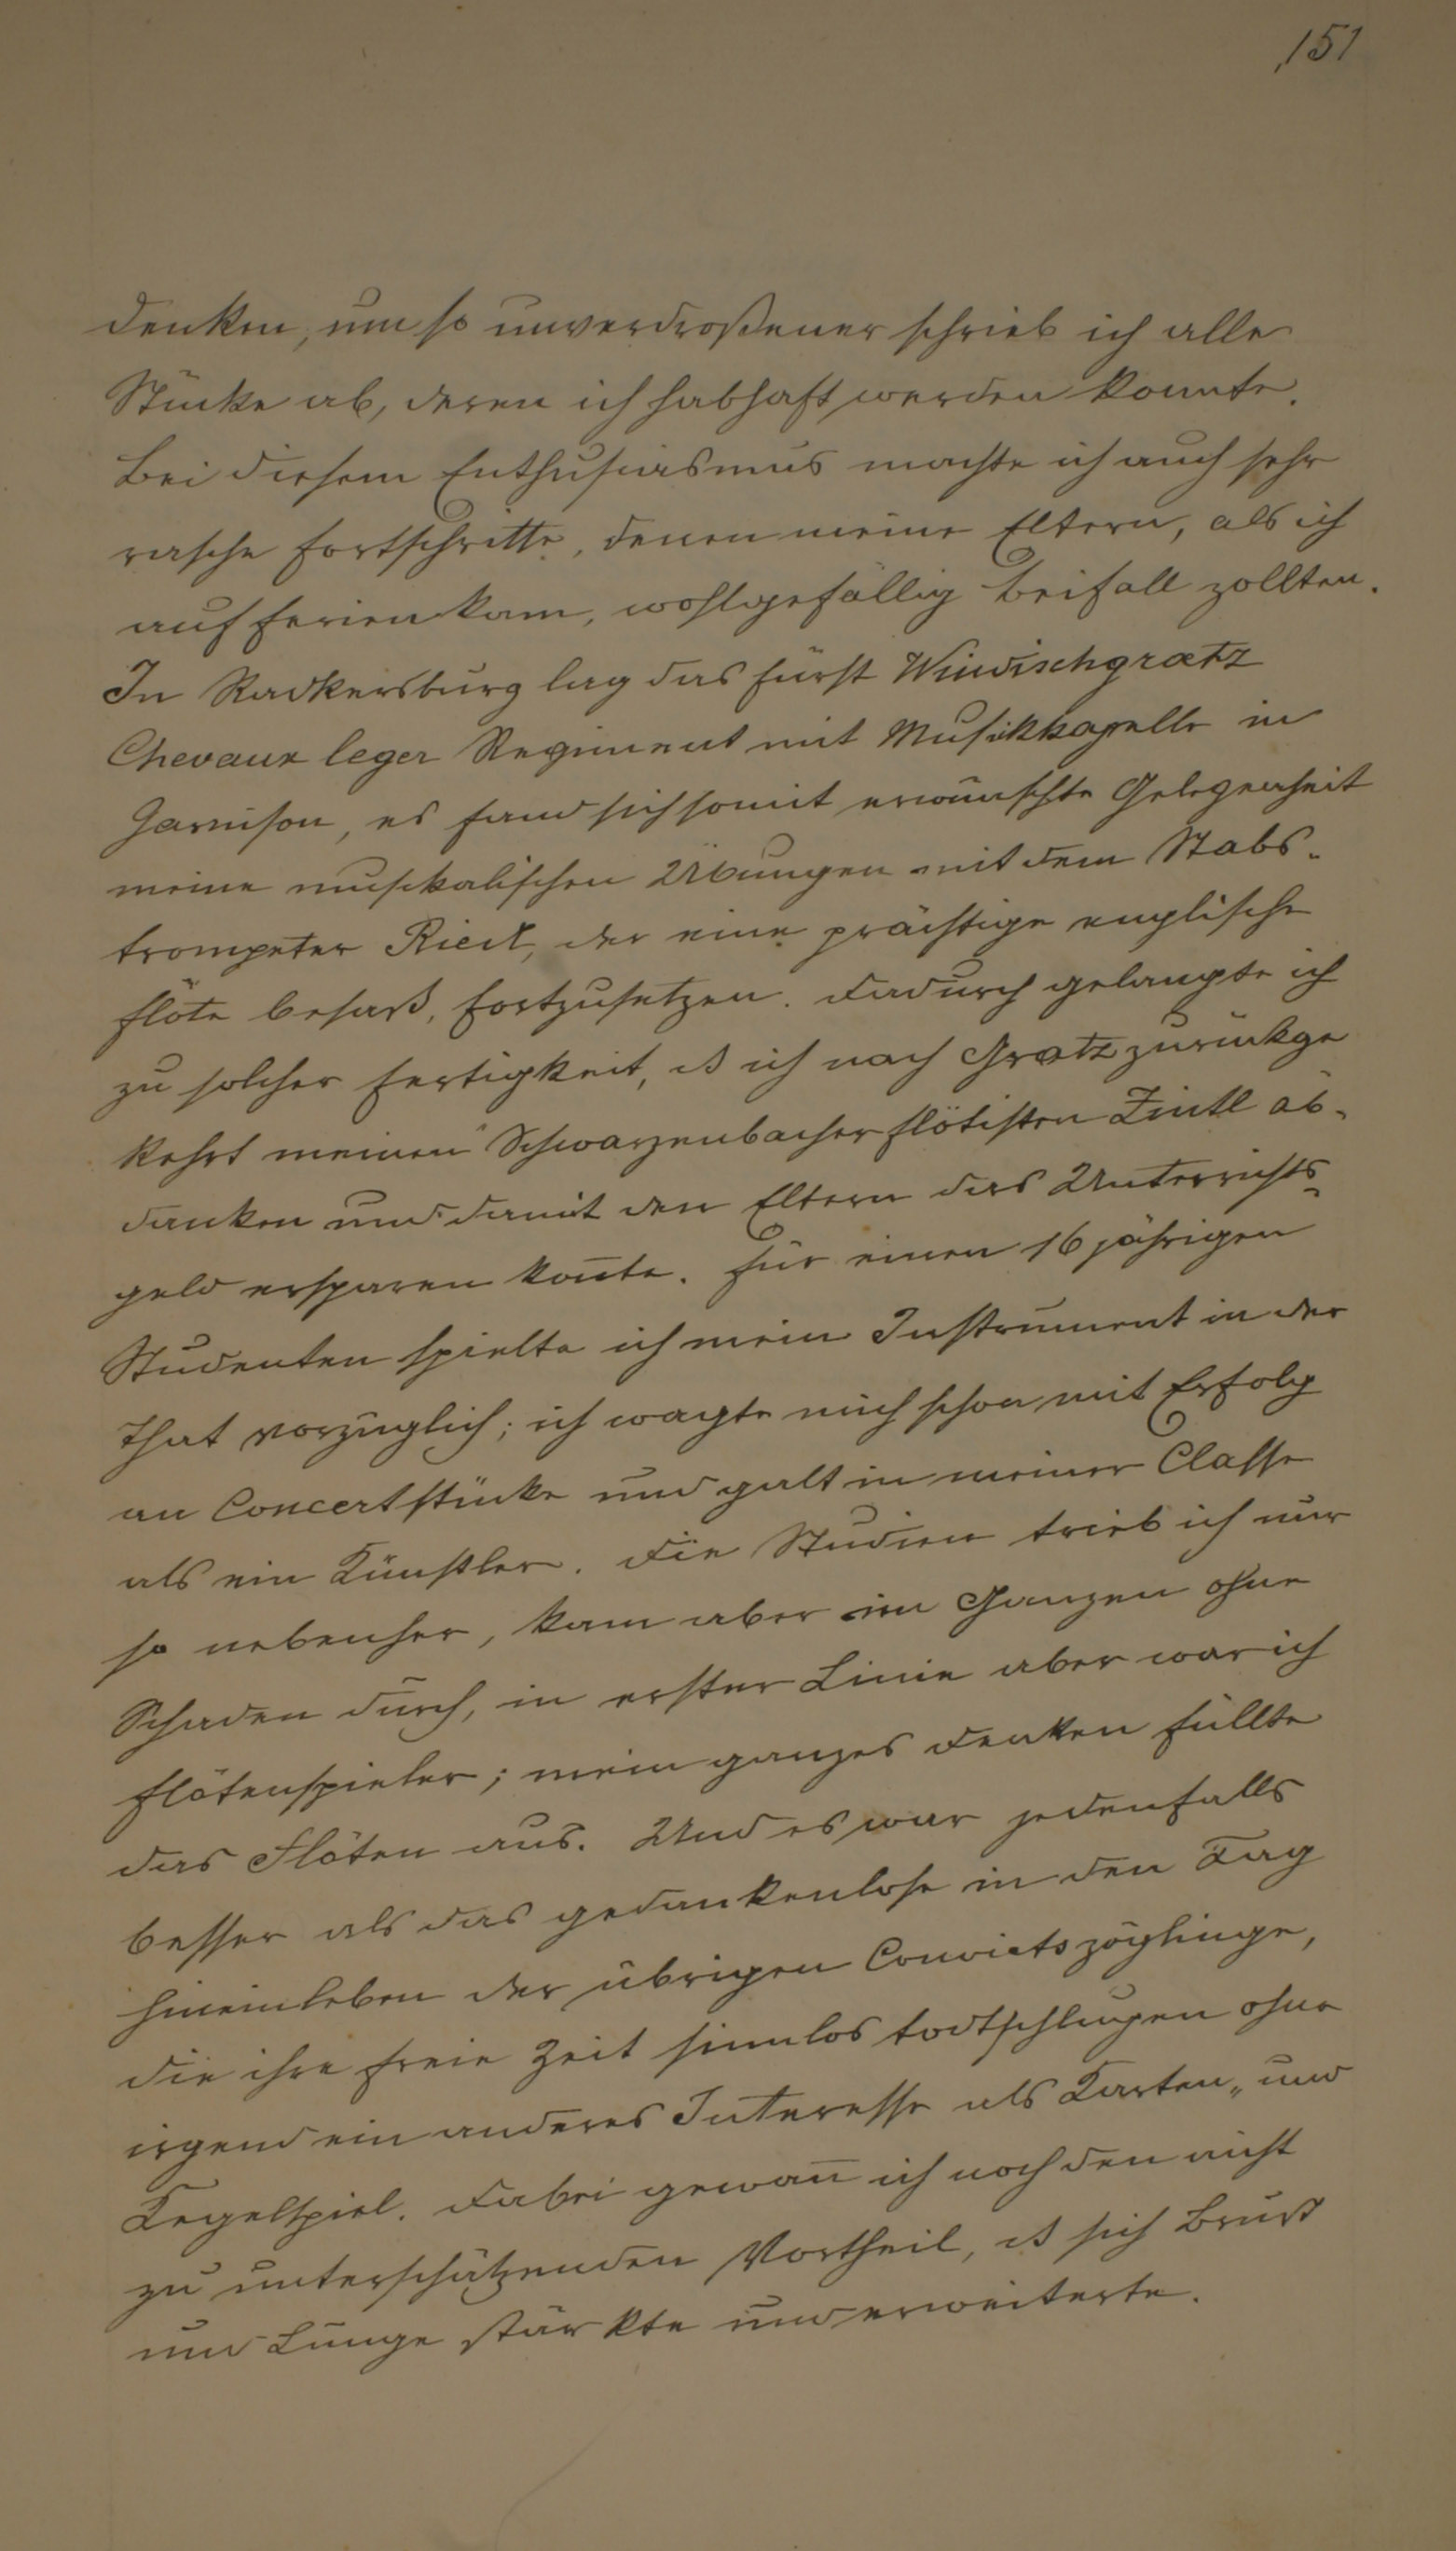 151
denken, um so unverdroßener schrieb ich alle
Stücke ab, deren ich habhaft werden konnte.
Bei diesem Enthusiasmus machte ich auch sehr
rasche Fortschritte, denen meine Eltern, als ich
auf Ferien kam, wohlgefällig Beifall zollten.
In Radkersburg lag das Fürst Windischgraetz
Chevaux leger Regiment mit Musikkapelle in
Garnison, es fand sich somit erwünschte Gelegenheit
meine musikalischen Übungen mit dem Stabs-
trompeter Riedl, der eine prächtige englische
Flöte besaß, fortzusetzen. Dadurch gelangte ich
zu solcher Fertigkeit, ds ich nach Gratz zurückge
kehrt meinen Schwarzenbacher Flötisten Zintl ab-
danken und damit den Eltern das Unterrichts-
geld ersparen kon̄te. Für einen 16 jährigen
Studenten spielte ich mein Instrument in der
That vorzüglich; ich wagte mich schon mit Erfolg
an Concertstücke und galt in meiner Classe
als ein Künstler. Die Studien trieb ich nur
so nebenher, kam aber im Ganzen ohne
Schaden durch, in erster Linie aber war ich
Flötenspieler; mein ganzes Denken füllte
das Flöten aus. Und es war jedenfalls
besser als das gedankenlose in den Tag
hineinleben der übrigen Convictszöglinge,
die ihre freie Zeit sinnlos todtschlugen ohne
irgend ein anderes Interesse als Karten- und
Kegelspiel. Dabei gewan̄ ich noch den nicht
zu unterschätzenden Vortheil, ds sich Brust
und Lunge stärkte und erweiterte.